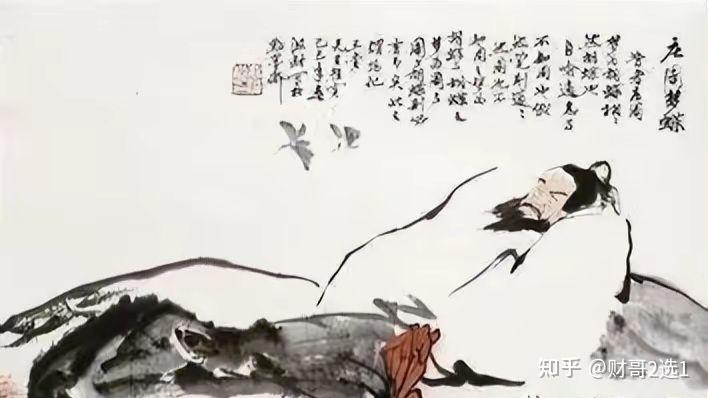 庄周梦蝶
昔者庄周
梦为胡蝶栩々
然胡蝶也
自喻适志与
不知周也俄
然觉则蘧々
然周也不
知周之梦为
胡蝶与胡蝶之
梦为周与
周与胡蝶则必
有分矣此之
谓物化
知乎 @财哥2选1